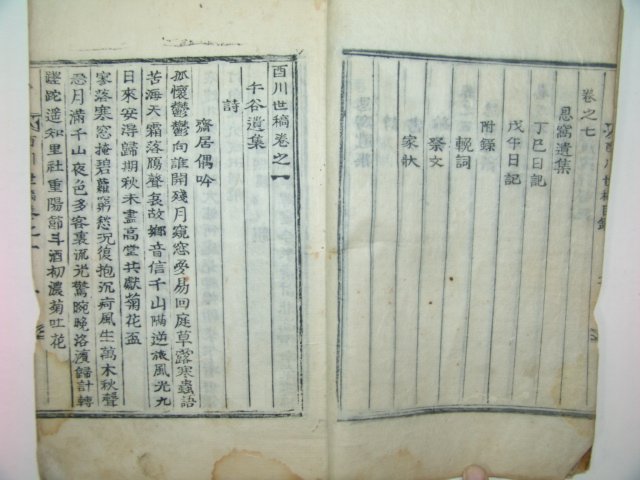 卷之七
恩窩遺集
丁巳日記
戊午日記
附錄
輓詞
祭文
家狀
酉川世稿卷之一
午谷遺集
詩
齋居偶吟
孤懷鬱鬱向誰開殘月窺窓愛易回庭草露寒蟲語
苦海天霜落鴈聲哀故鄕音信千山隔逆旅風光九
日來安得歸期秋未盡高堂共獻菊花盃
家落寒窓掩碧蘿窮愁况復抱沉疴風生萬木秋聲
急月滿千山夜色多客裏流光驚晼晚洛濱歸計轉
蹉跎遙知里社重陽節斗酒初濃菊吐花